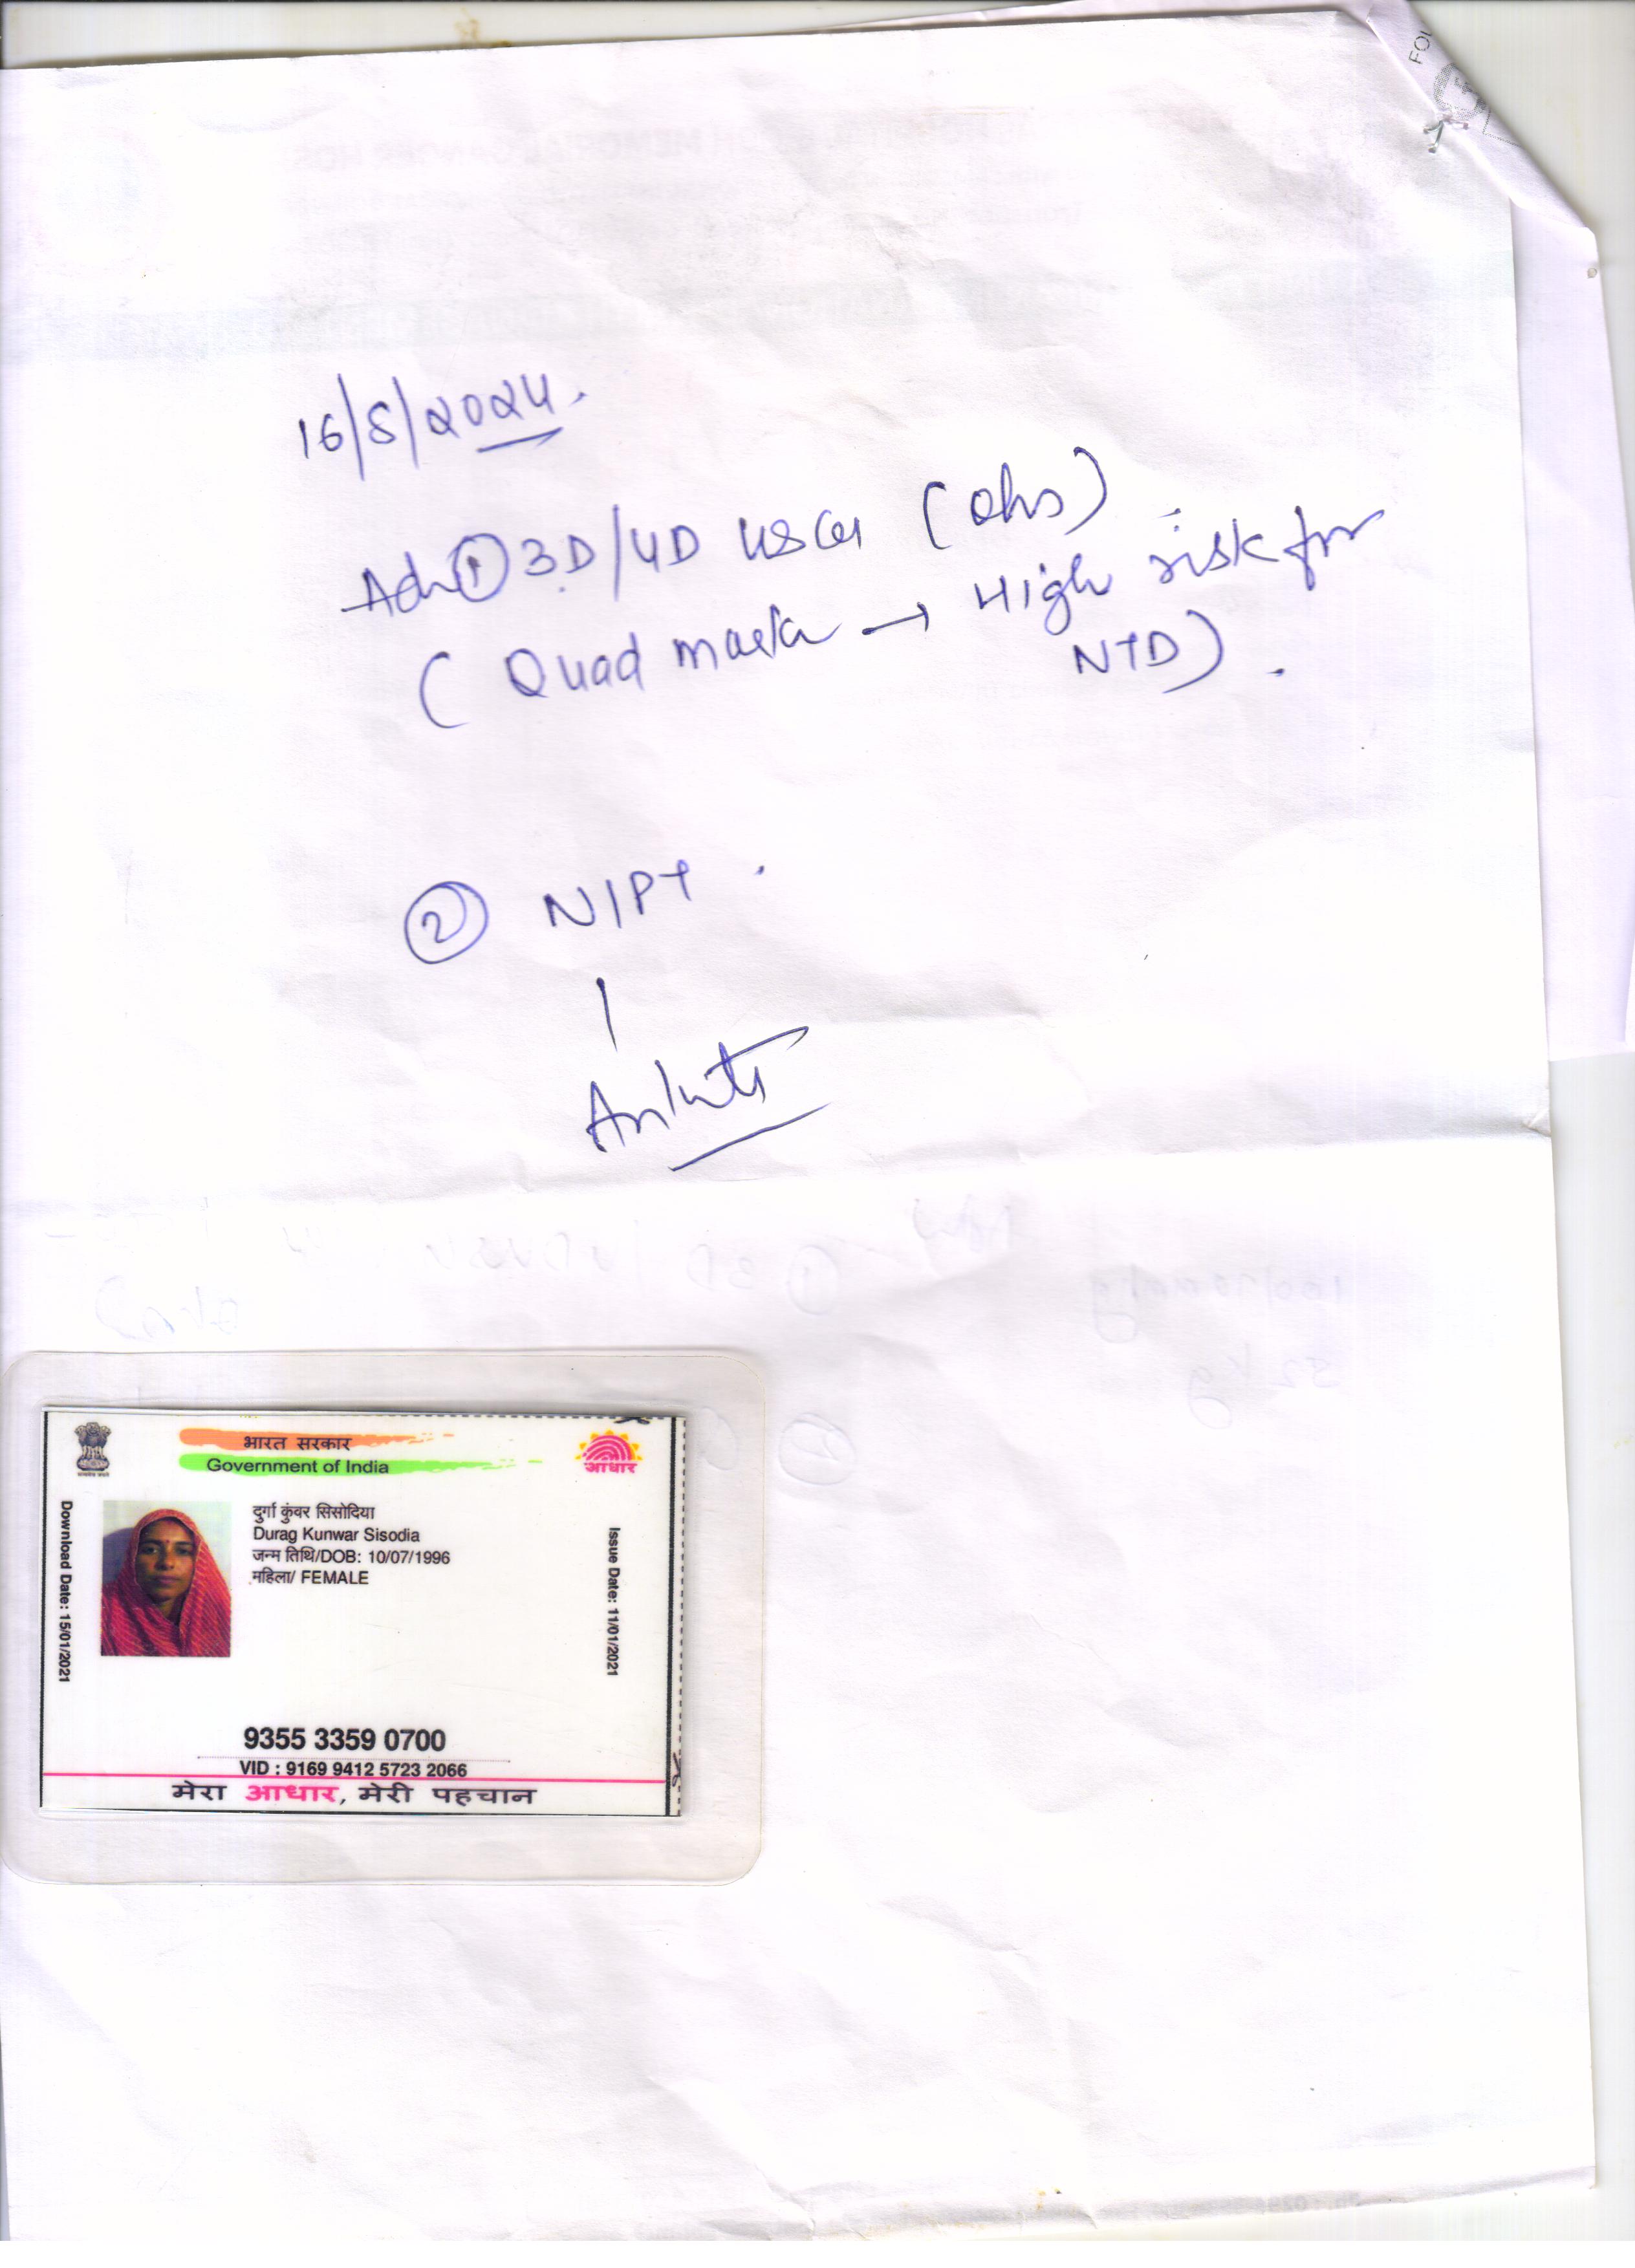 16/5/2024.
Adv ① 3D/4D USG (Obs)
( Quad marker → High risk for
NTD) .
② NIPT .
भारत सरकार
Government of India
आधार
दुर्गा कुंवर सिसोदिया
Durag Kunwar Sisodia
जन्म तिथि/DOB: 10/07/1996
महिला/ FEMALE
Download Date: 15/01/2021
Issue Date: 11/01/2021
9355 3359 0700
VID : 9169 9412 5723 2066
मेरा आधार, मेरी पहचान